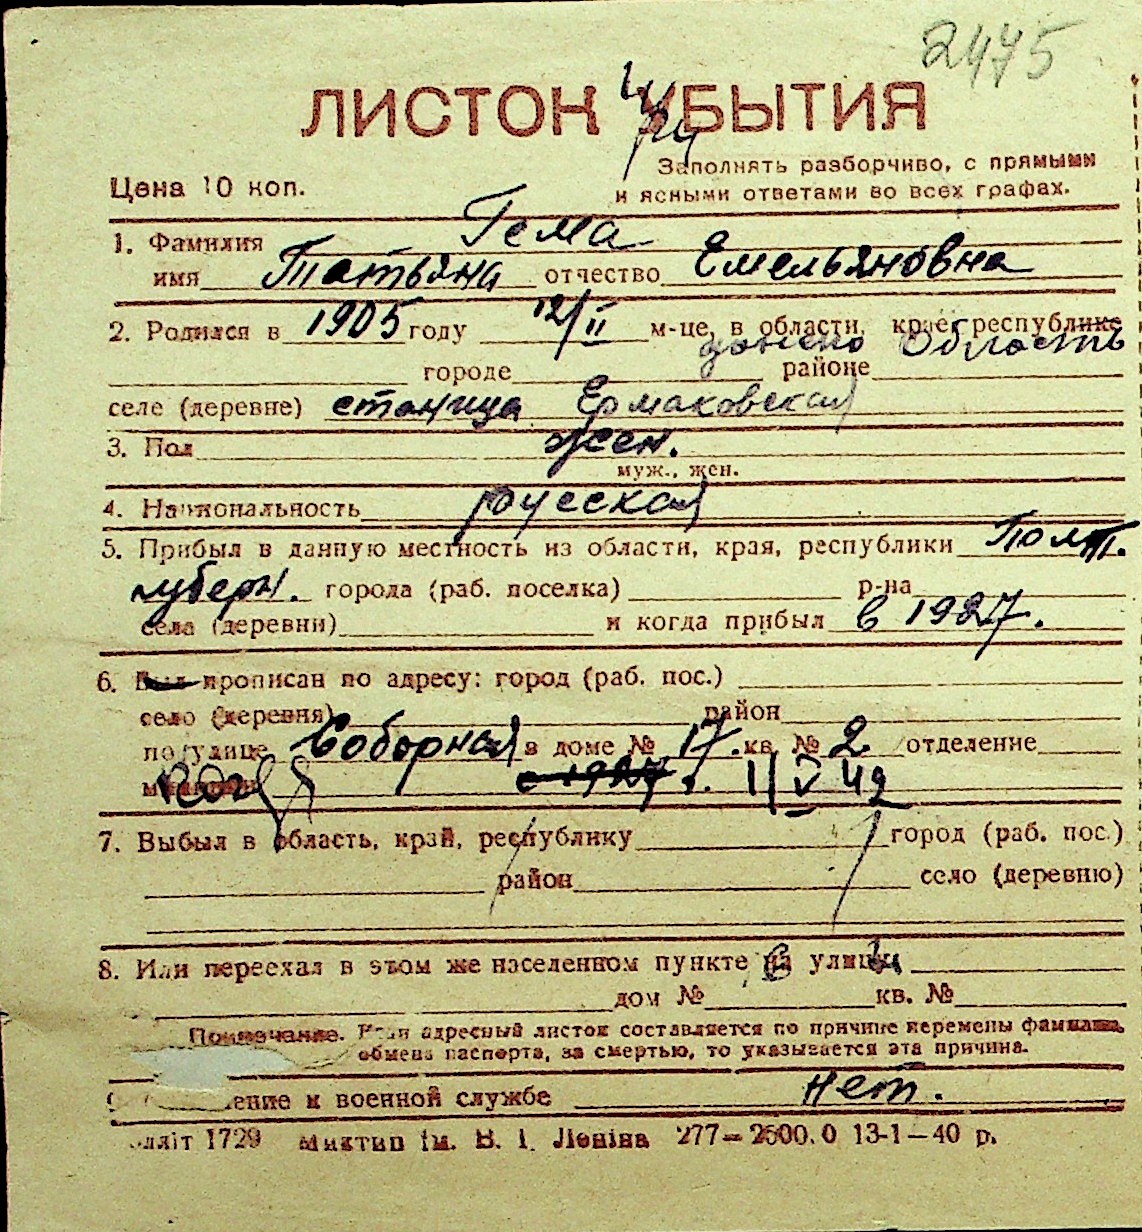 2475
ЛИСТОК УБЫТИЯ
Цена 10 коп.
Заполнять разборчиво, с прямыми
и ясными ответами во всех графах.
1. Фамилия Гема
имя Татьяна отчество Емельяновна
2. Родился в 1905 году 12/II м-це, в области, крае, республике
область
городе районе
селе (деревне) станица Ермаковская
3. Пол жен.
муж., жен.
4. Национальность русская
5. Прибыл в данную местность из области, края, республики Полт.
губерн. города (раб. поселка) р-на
села (деревни) и когда прибыл в 1927.
6. Был прописан по адресу: город (раб. пос.)
село (деревня) район
по улице Соборная в доме № 17. кв. № 2 отделение
с 1927. 11/V 42
7. Выбыл в область, край, республику город (раб. пос.)
район село (деревню)
8. Или переехал в этом же населенном пункте на улицу
дом № кв. №
Примечание. Если адресный листок составляется по причине перемены фамилии,
обмена паспорта, за смертью, то указывается эта причина.
к военной службе нет.
1729 Миктип ім. В. І. Леніна 277—2500.0 13-1—40 р.